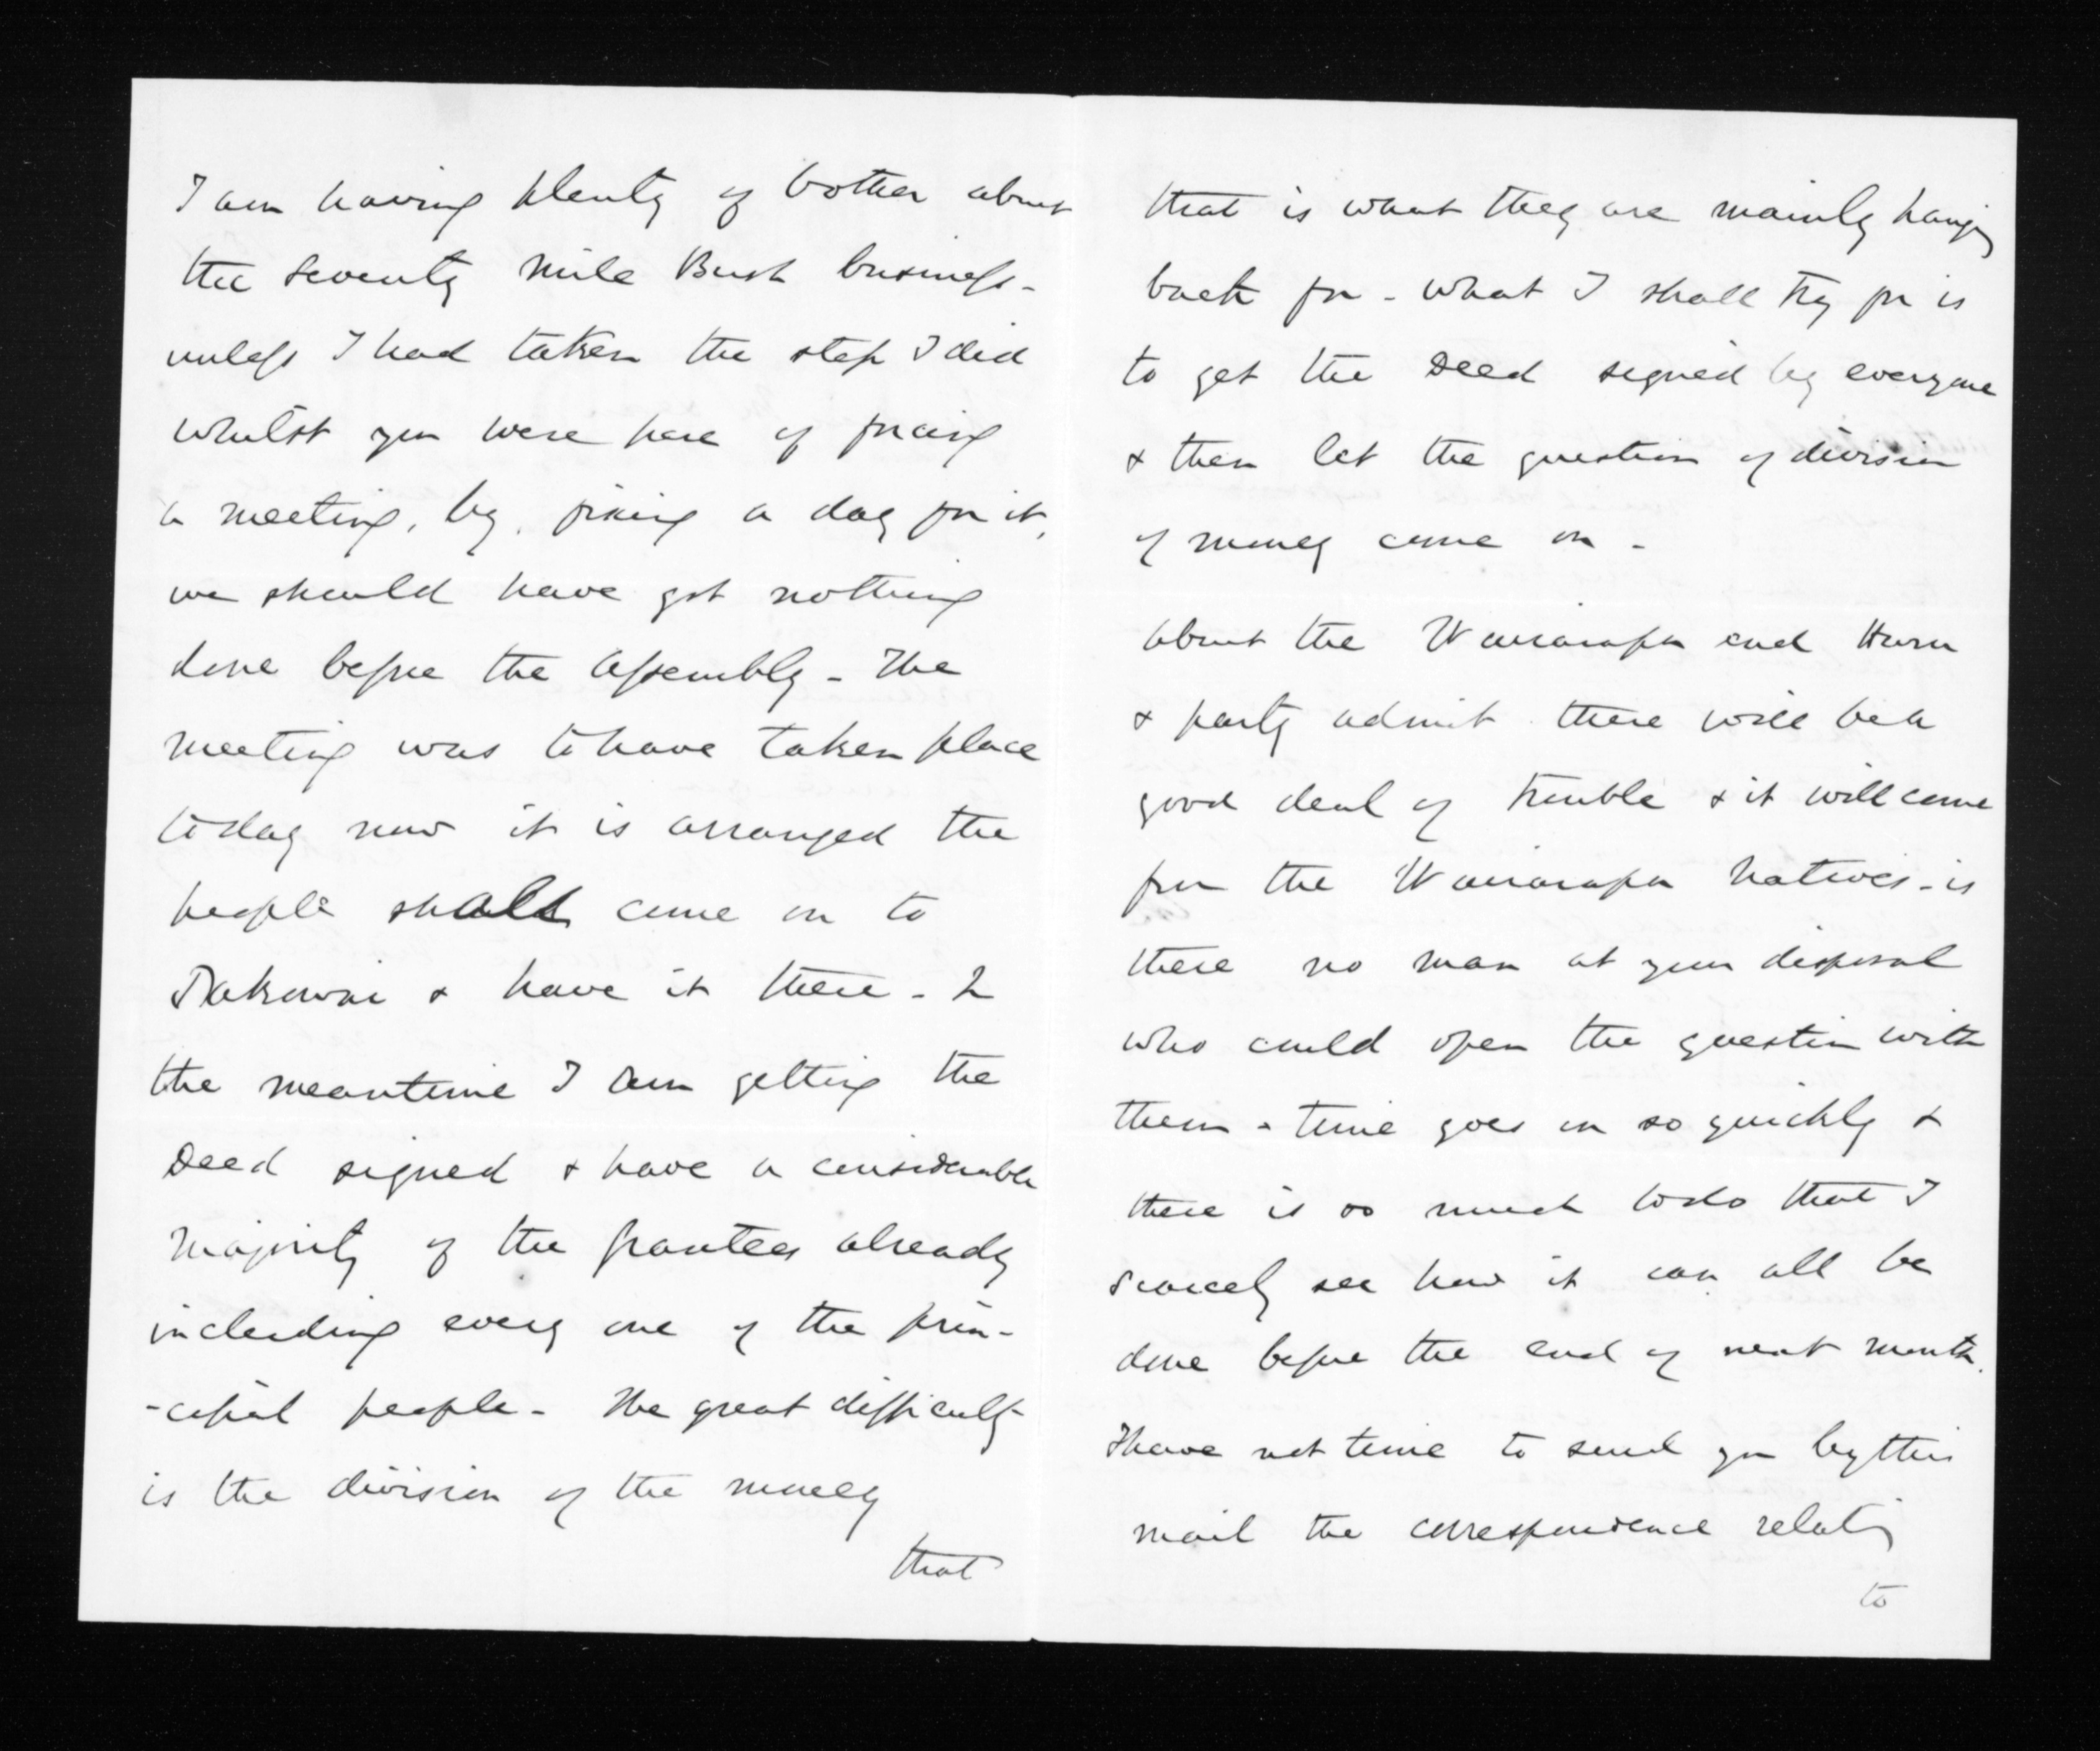 I am having plenty of bother about
the Seventy Mile Bush business -
unless I had taken the step I did
whilst you were here of forcing
a meeting, by, fixing a day for it,
we should have got nothing
done before the Assembly - The
meeting was to have taken place
today now it is arranged the
people shall come on to
Pakowai & have it there - In
the meantime I am getting the
Deed signed & have a considerable
majority of the grantees already
including every one of the prin-
-cipal people - The great difficulty
is the division of the money
that
that is what they are mainly hanging
back for - What I shall try for is
to get the Deed signed by everyone
& then let the question of division
of money come on -
About the Wairarapa end
& party admit there will be a
good deal of trouble & it will come
from the Wairarapa Natives - is
there no man at your disposal
who could open the question with
them - time goes on so quickly &
there is so much to do that I
scarcely see how it can all be
done before the end of next month.
I have not time to send you by this
mail the correspondence relating
to